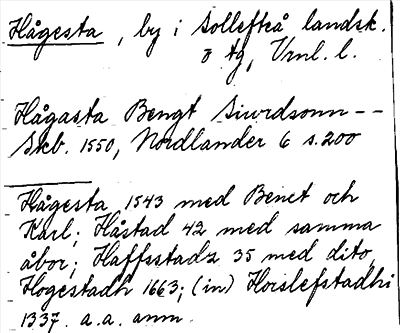 Hågesta, by i Sollefteå landsk.
o tg, Vrnl. l.
Hågasta Bengt Siurdsonn --
Skb. 1550, Nordlander 6 s.200
Hågesta 1543 med Benct och
Karl; Håstad 42 med samma
åbor; Haffsstadz 35 med dito,
Hogestadh 1663; (in) Horslefstadhi
1337. a.a. anm.